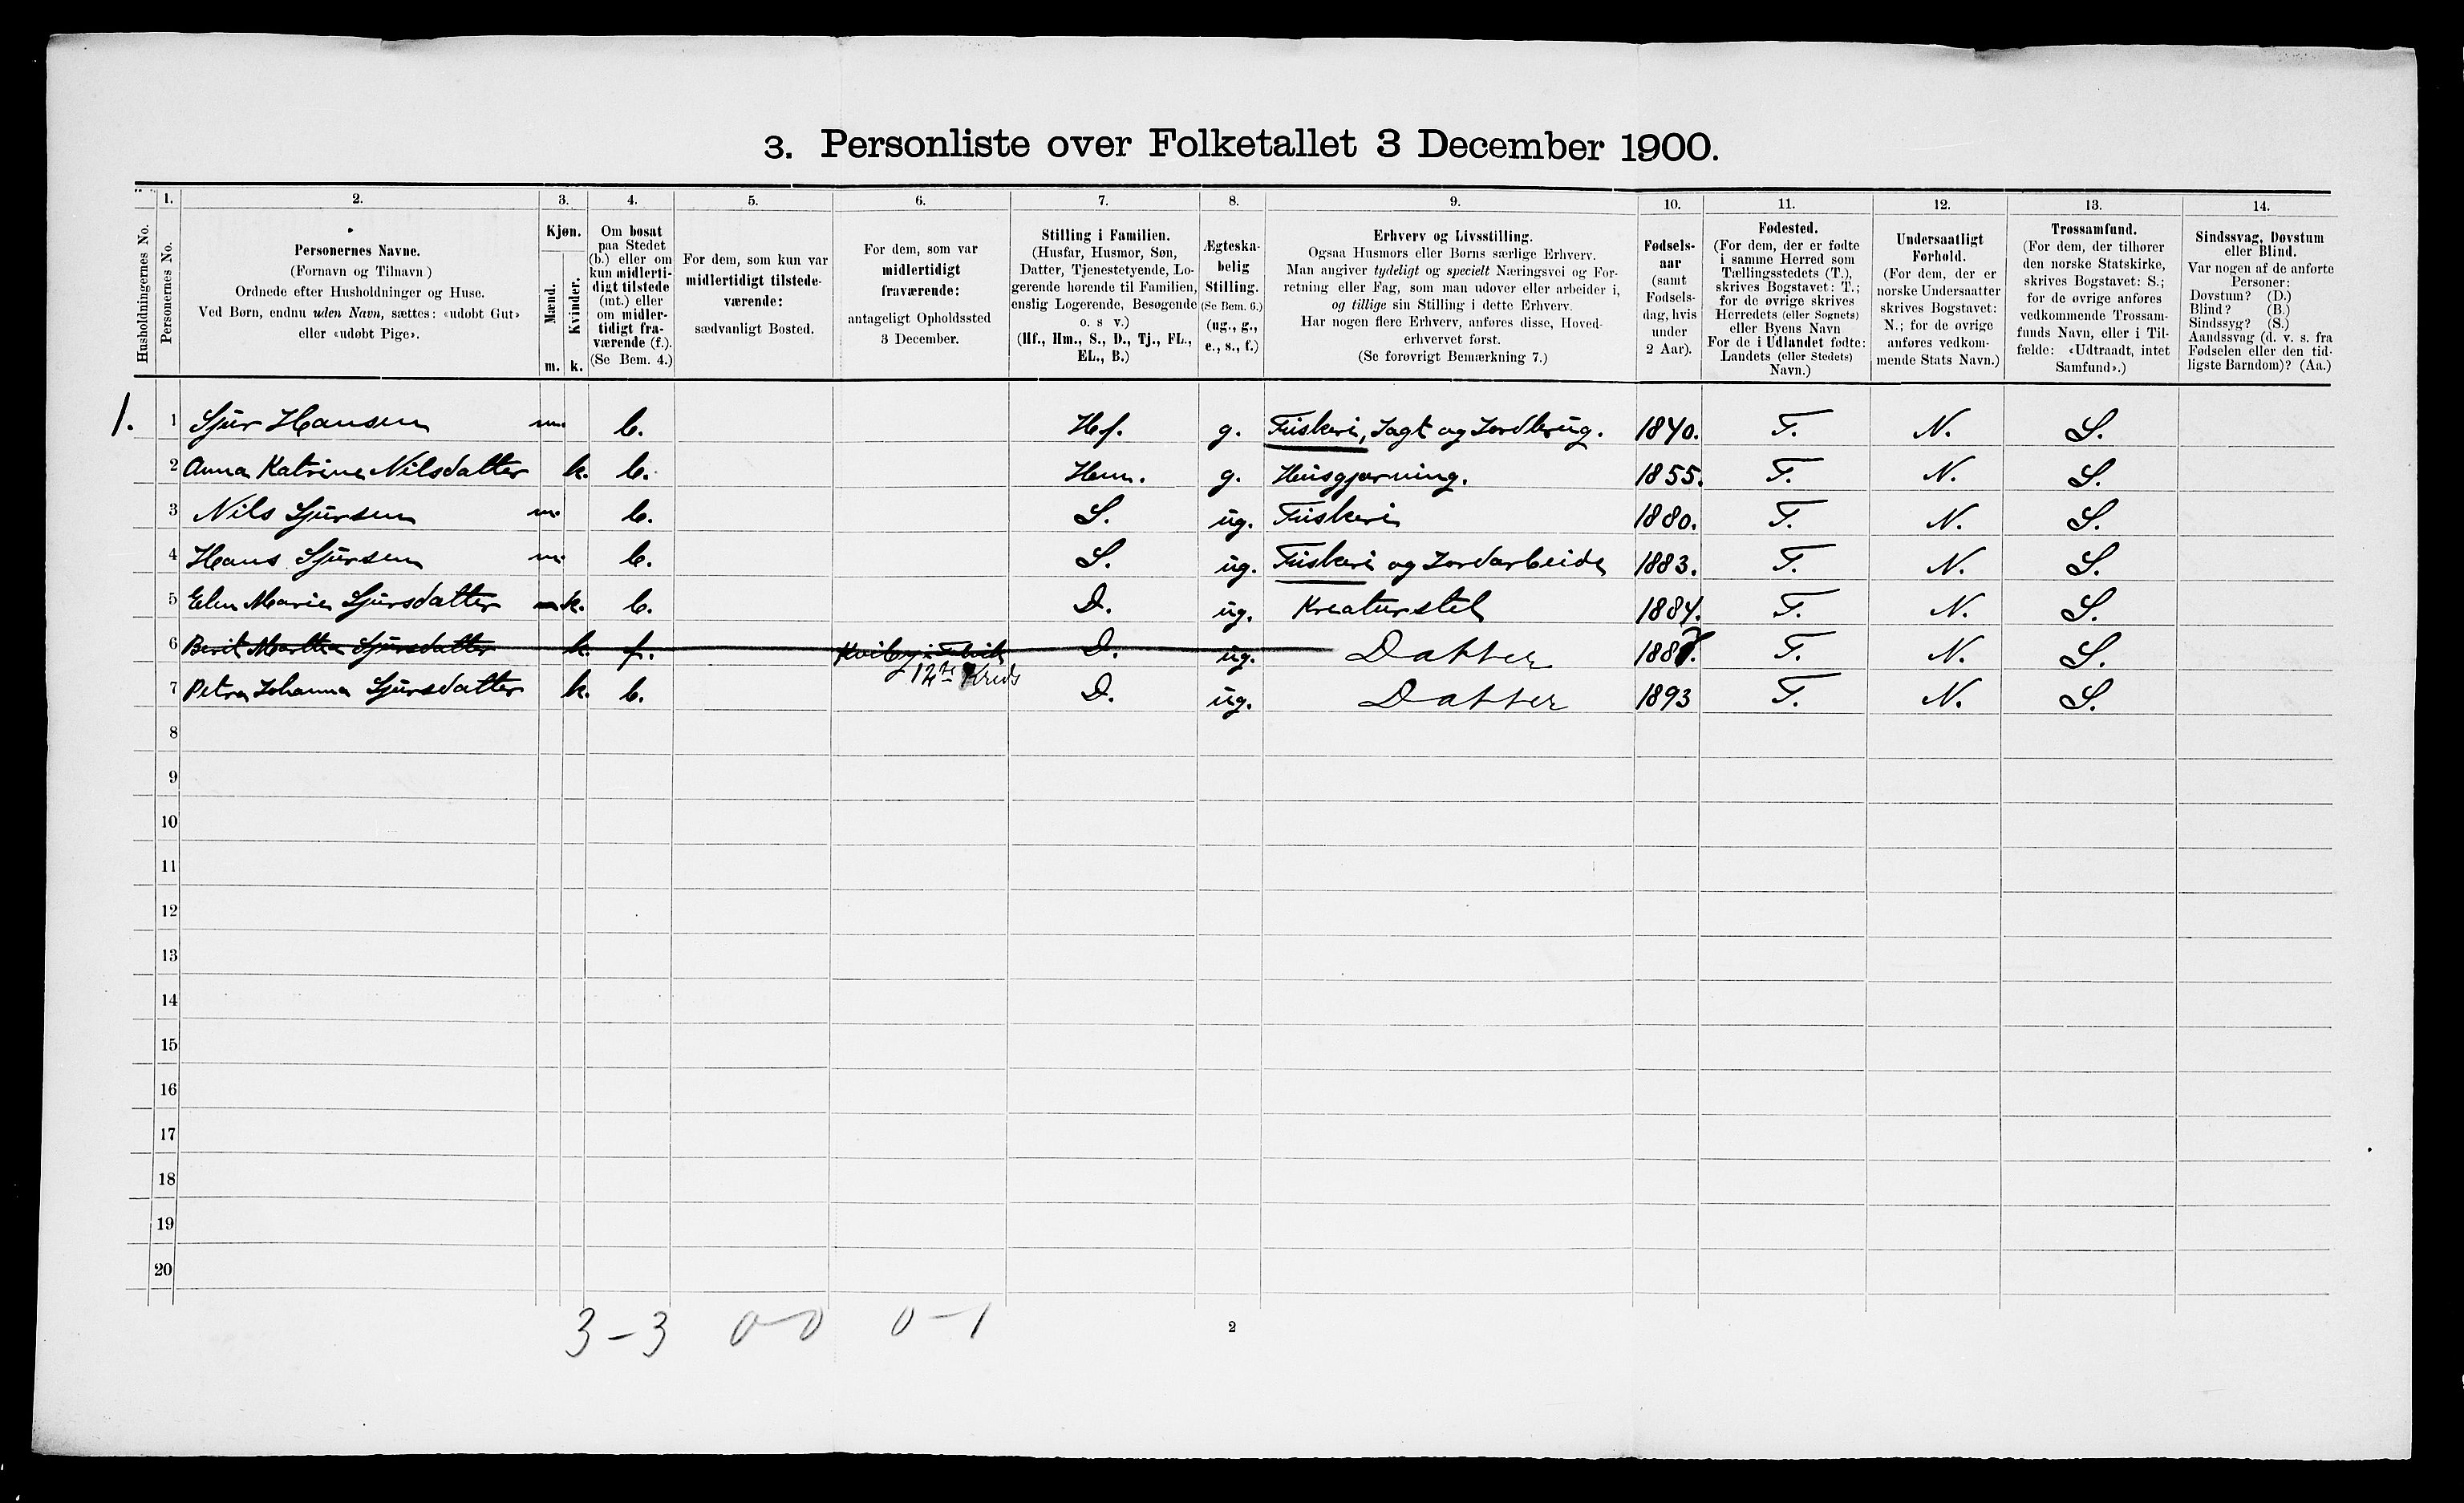 3. Personliste over Folketallet 3 December 1900.
Husholdningernes No.
1.
Personernes No.
2.
Personernes Navne.
(Fornavn og Tilnavn)
Ordnede efter Husholdninger og Huse.
Ved Børn, endnu uden Navn, sættes: «udøbt Gut»
eller «udøbt Pige».
3.
Kjøn.
Mænd.
Kvinder.
m. k.
4.
Om bosat
paa Stedet
(b.) eller om
kun midlerti-
digt tilstede
(mt.) eller
om midler-
tidigt fra-
værende (f.).
(Se Bem. 4.)
5.
For dem, som kun var
midlertidigt tilstede-
værende:
sædvanligt Bosted.
6.
For dem, som var
midlertidigt
fraværende:
antageligt Opholdssted
3 December.
7.
Stilling i Familien.
(Husfar, Husmor, Søn,
Datter, Tjenestetyende, Lo-
gerende hørende til Familien,
enslig Logerende, Besøgende
o. s v.)
(Hf., Hm., S., D., Tj., FL.,
EL., B.)
8.
Ægteska-
belig
Stilling.
(Se Bem. 6.)
(ug., g.,
e., s., f.)
9.
Erhverv og Livsstilling.
Ogsaa Husmors eller Børns særlige Erhverv.
Man angiver tydeligt og specielt Næringsvei og For-
retning eller Fag, som man udøver eller arbeider i,
og tillige sin Stilling i dette Erhverv.
Har nogen flere Erhverv, anføres disse, Hoved-
erhvervet først.
(Se forøvrigt Bemærkning 7.)
10.
Fødsels-
aar
(samt
Fødsels-
dag, hvis
under
2 Aar).
11.
Fødested.
(For dem, der er fødte
i samme Herred som
Tællingsstedets (T.),
skrives Bogstavet: T.;
for de øvrige skrives
Herredets (eller Sognets)
eller Byens Navn
For de i Udlandet fødte:
Landets (eller Stedets)
Navn.)
12.
Undersaatligt
Forhold.
(For dem, der er
norske Undersaatter
skrives Bogstavet:
N.; for de øvrige
anføres vedkom-
mende Stats Navn.)
13.
Trossamfund.
(For dem, der tilhører
den norske Statskirke,
skrives Bogstavet: S.;
for de øvrige anføres
vedkommende Trossam-
funds Navn, eller i Til-
fælde: «Udtraadt, intet
Samfund».)
14.
Sindssvag, Døvstum
eller Blind.
Var nogen af de anførte
Personer:
Døvstum? (D.)
Blind? (B.)
Sindssyg? (S.)
Aandssvag (d. v. s. fra
Fødselen eller den tid-
ligste Barndom)? (Aa.)
1. 1 Sjur Hansen m. b. Hf. g. Fiskeri, Jagt og Jordbrug. 1840. T. N. S.
2 Anna Katrine Nilsdatter k. b. Hm. g. Husgjerning. 1855. T. N. S.
3 Nils Sjursen m. b. S. ug. Fiskeri 1880. T. N. S.
4 Hans Sjursen m. b. S. ug. Fiskeri og Jordarbeide 1883. T. N. S.
5 Elen Marie Sjursdatter k. b. D. ug. Kreaturstel 1884. T. N. S.
6 Berit Martha Sjursdatter k. f. Kviby i Talvik D. ug. Datter 1887. T. N. S.
12te Kreds
7 Petra Johanna Sjursdatter k. b. D. ug. Datter 1893 T. N. S.
8
9
10
11
12
13
14
15
16
17
18
19
20
3-3 0-0 0-1
2